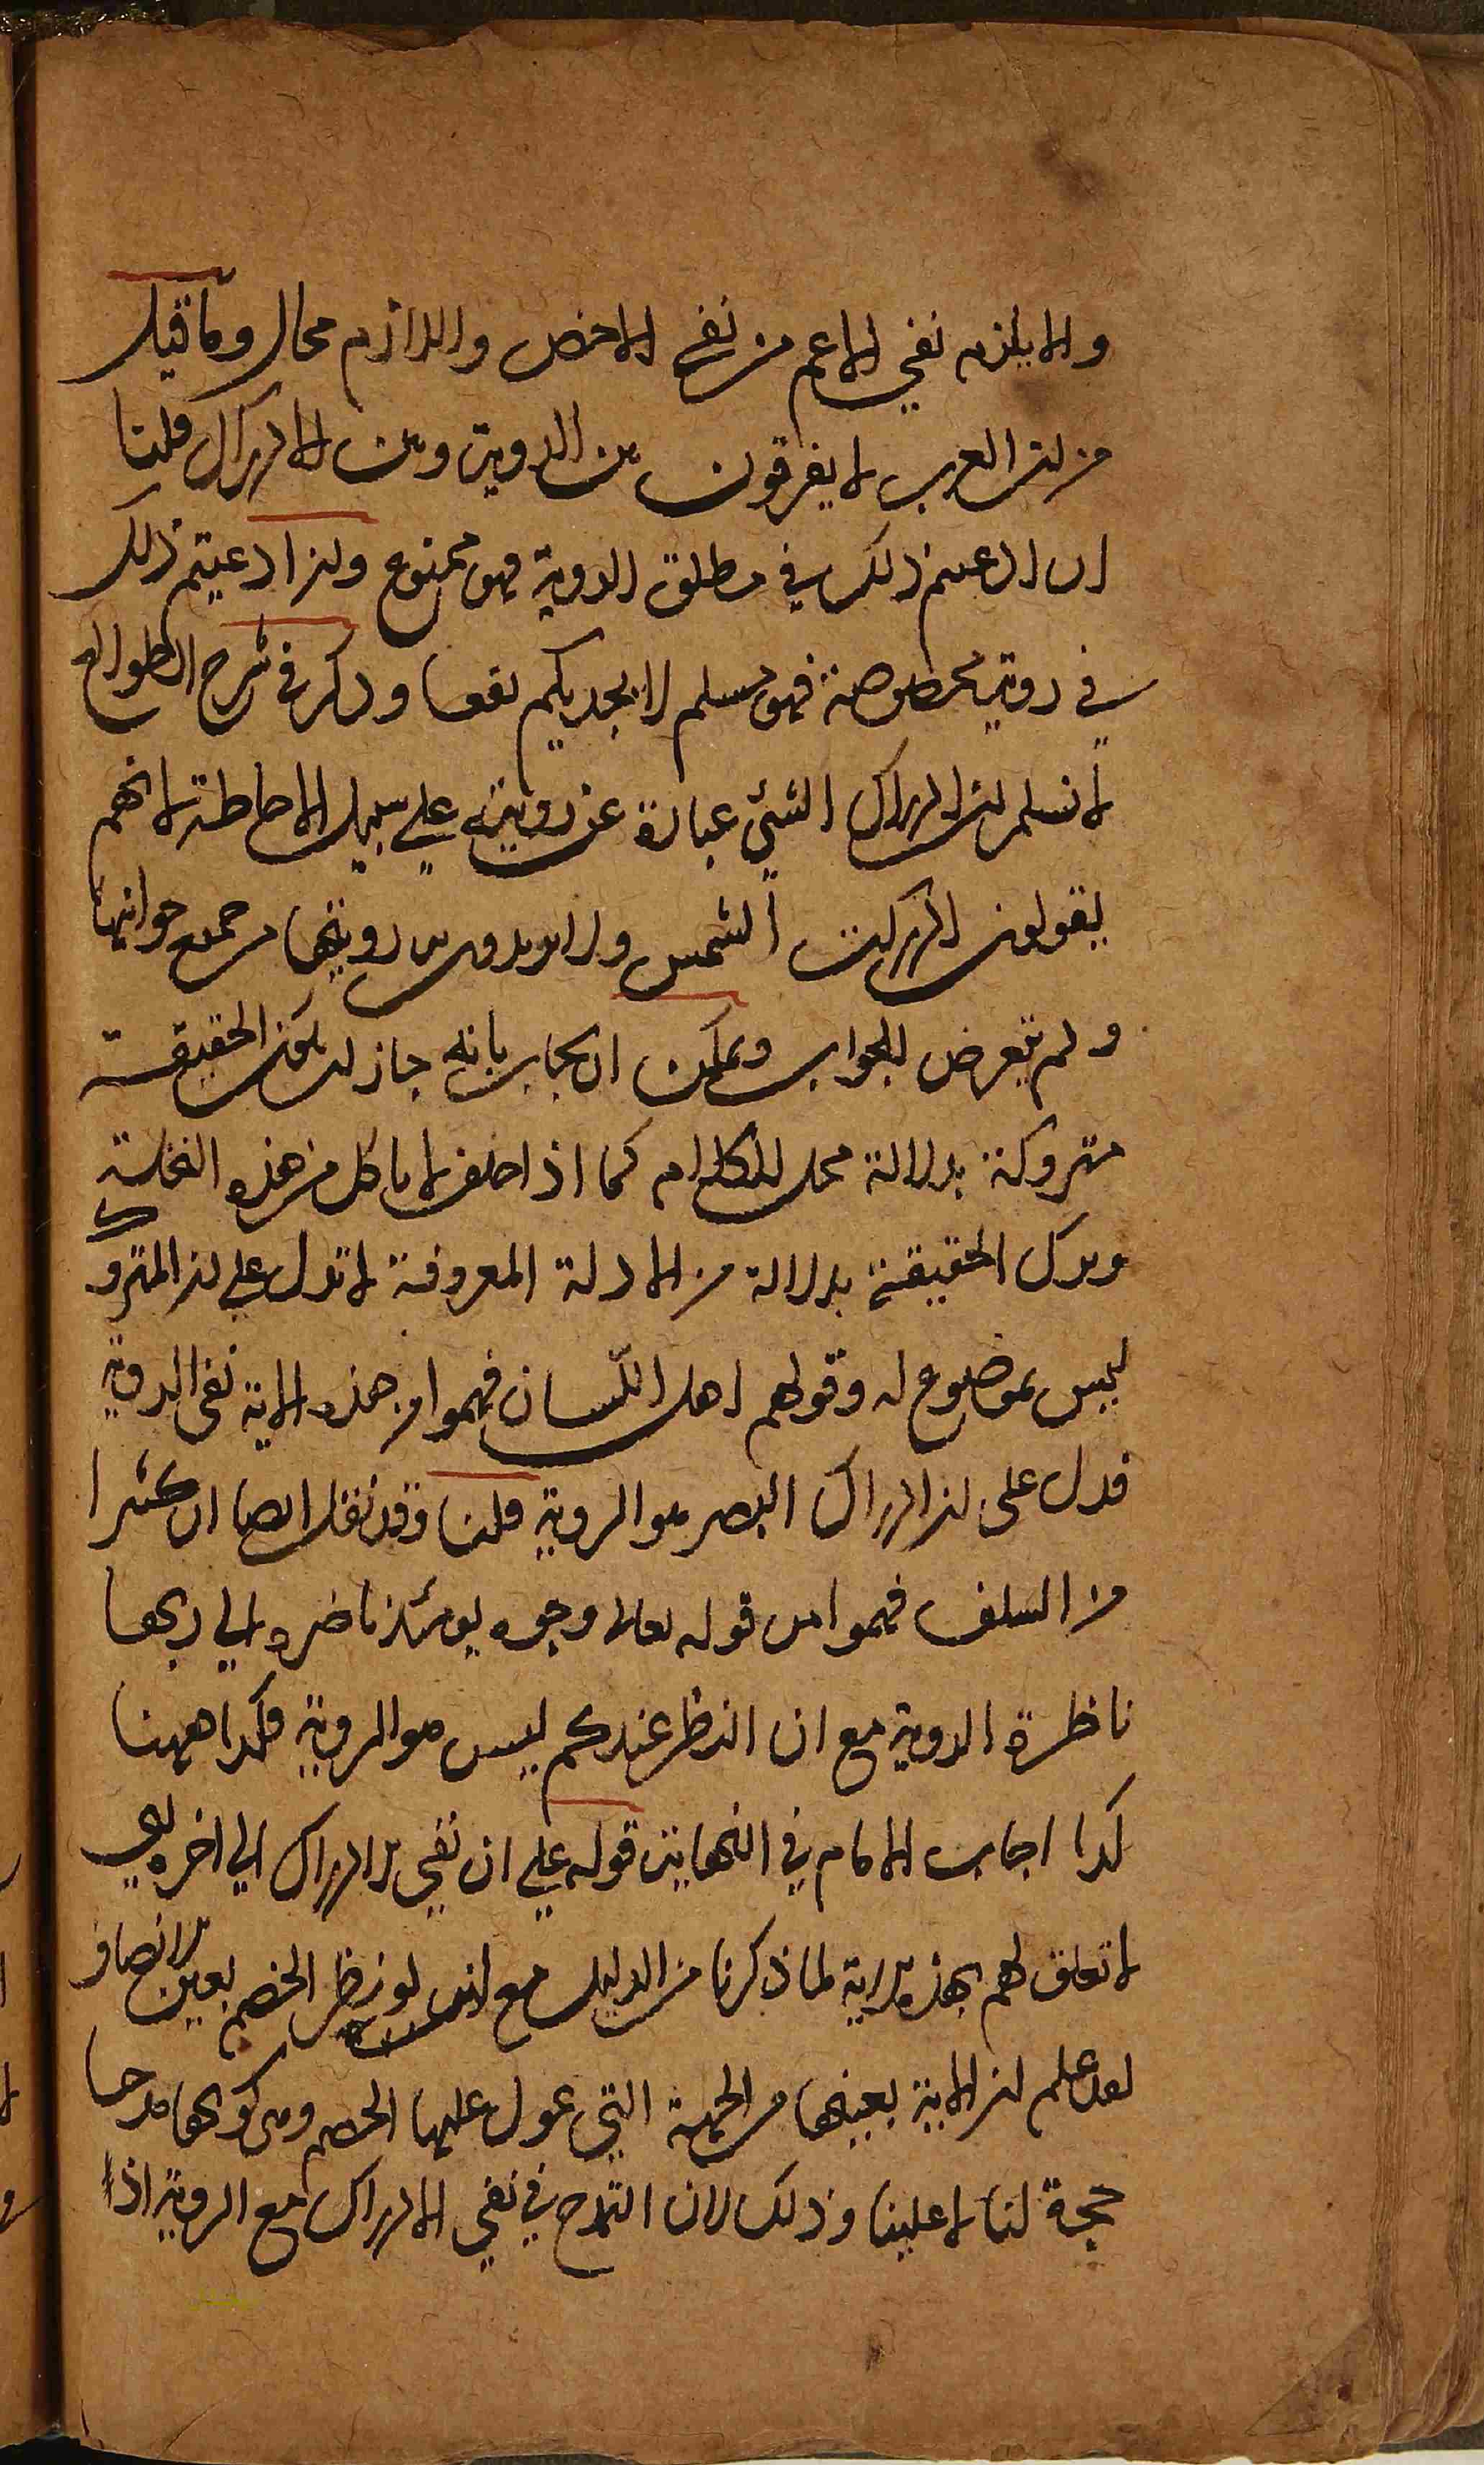 والا يلزم نفي الاعم من نفي الاخص واللازم محال وما قيل
من ان العرب لا يفرقون بين الروية وبين الادراك قلنا
ان ادعيتم ذلك في مطلق الروية فهو ممنوع وان ادعيتم ذلك
في روية مخصوصة فهو مسلم لا يجديكم نفعا وذكر في شرح الطوالع
لا نسلم ان ادراك الشئ عبارة عن رويته علي سبيل الاحاطة لانهم
يقولون ادركت الشمس ولا يريدون رويتها من جميع جوانبها
ولم يتعرض للجواب ويمكن ان يجاب بانه جاز ان يكون الحقيقة
متروكة بدلالة محل الكلام كما اذا حلف لا ياكل من هذه النخلة
وترك الحقيقة بدلالة من الادلة المعروفة لا تدل علي ان المتروك
ليس بموضوع له وقولهم اهل اللسان فهموا من هذه الاية نفي الروية
فدل على ان ادراك البصر هو الروية قلنا وقد نقل ايضا ان كثيرا
من السلف فهموا من قوله تعالى وجوه يومئذ ناضره الي ربها
ناظرة الروية مع ان النظر عندكم ليس هو الروية فكذا ههنا
كذا اجاب الامام في النهاية قوله علي ان نفي الادراك الي اخره يعني
لا تعلق لهم بهذه الاية لما ذكرنا من الدليل مع انه لو نظر الخصم بعين الانصاف
لعلم ان الاية بعينها من الجهة التي عول عليها الخصم وهى كونها مدحا
حجة لنا لا علينا وذلك لان التمدح في نفي الادراك مع الروية اذا